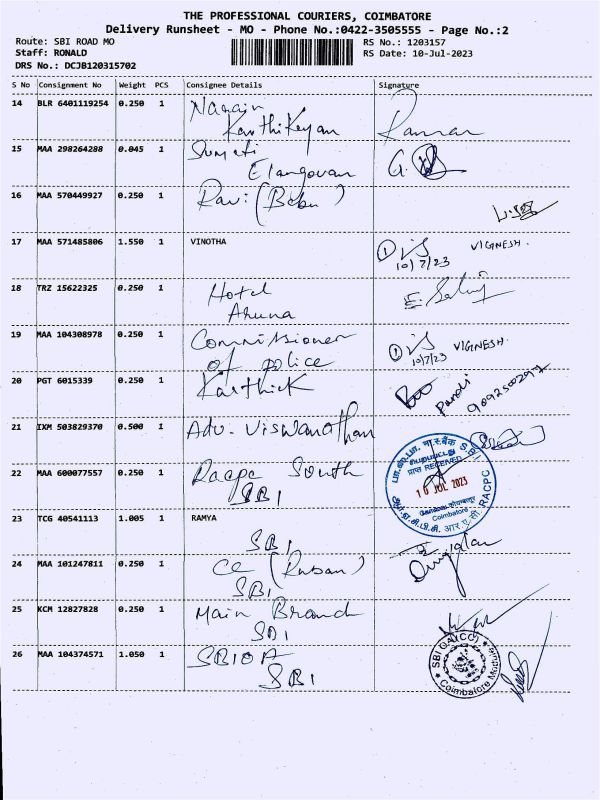 THE PROFESSIONAL COURIERS, COIMBATORE
Delivery Runsheet - MO - Phone No.:0422-3505555 - Page No.:2
Route: SBI ROAD MO RS No.: 1203157
Staff: RONALD RS Date: 10-Jul-2023
DRS No.: DCJB120315702
S No Consignment No Weight PCS Consignee Details Signature
14 BLR 6401119254 0.250 1 Narain
Karthikeyan
15 MAA 298264288 0.045 1 Sumati G.
Elangovan
16 MAA 570449927 0.250 1 Ravi (Babu)
17 MAA 571485806 1.550 1 VINOTHA 1 VIGNESH.
10/7/23
18 TRZ 15622325 0.250 1 Hotel
Aruna
19 MAA 104308978 0.250 1 Commissioner 1 VIGNESH.
of police 10/7/23
20 PGT 6015339 0.250 1 Karthick
21 IXM 503829370 0.500 1 Adv. Viswanathan
22 MAA 600077557 0.250 1 Racpc South
SBI
RECEIVED
10 JUL 2023
Coimbatore
S.B.I. RACPC
23 TCG 40541113 1.005 1 RAMYA
SBI
24 MAA 101247811 0.250 1 CE (Ruban)
SBI
25 KCM 12827828 0.250 1 Main Branch
SBI
26 MAA 104374571 1.050 1 SBIOA
SBI
SBI OA(CC)
Coimbatore Module